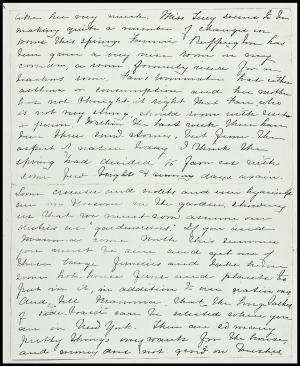 like her very much. Miss Lucy seems to be
making quite a number of changes in
some this spring. Fannie Buffington has
been given a very nice room on my
corridor, a room formerly used for a
teachers room. Fan's roommate has either
asthma or consumption and her mother
has not thought it right that Fan who
is not very strong should room with such
a person. Within the last week there have
been three snow storms, but from the
aspect of nature today I think the
spring has decided to favor us with
some few bright & sunny days again.
Some crocuses and violets and even hyacinths
are in blossom in the garden, showing
us that we must soon assume our
duties as gardeners. If you and
Mamma come North this summer
you must be sure and get one of
these large and take home
some hot-house ferns and plants to
put in it, in addition to our native ones.
And tell Mamma that the
of side-board can be selected when you
are in New York. There are so many
pretty things one wants for the house,
and money does not grow on bushes